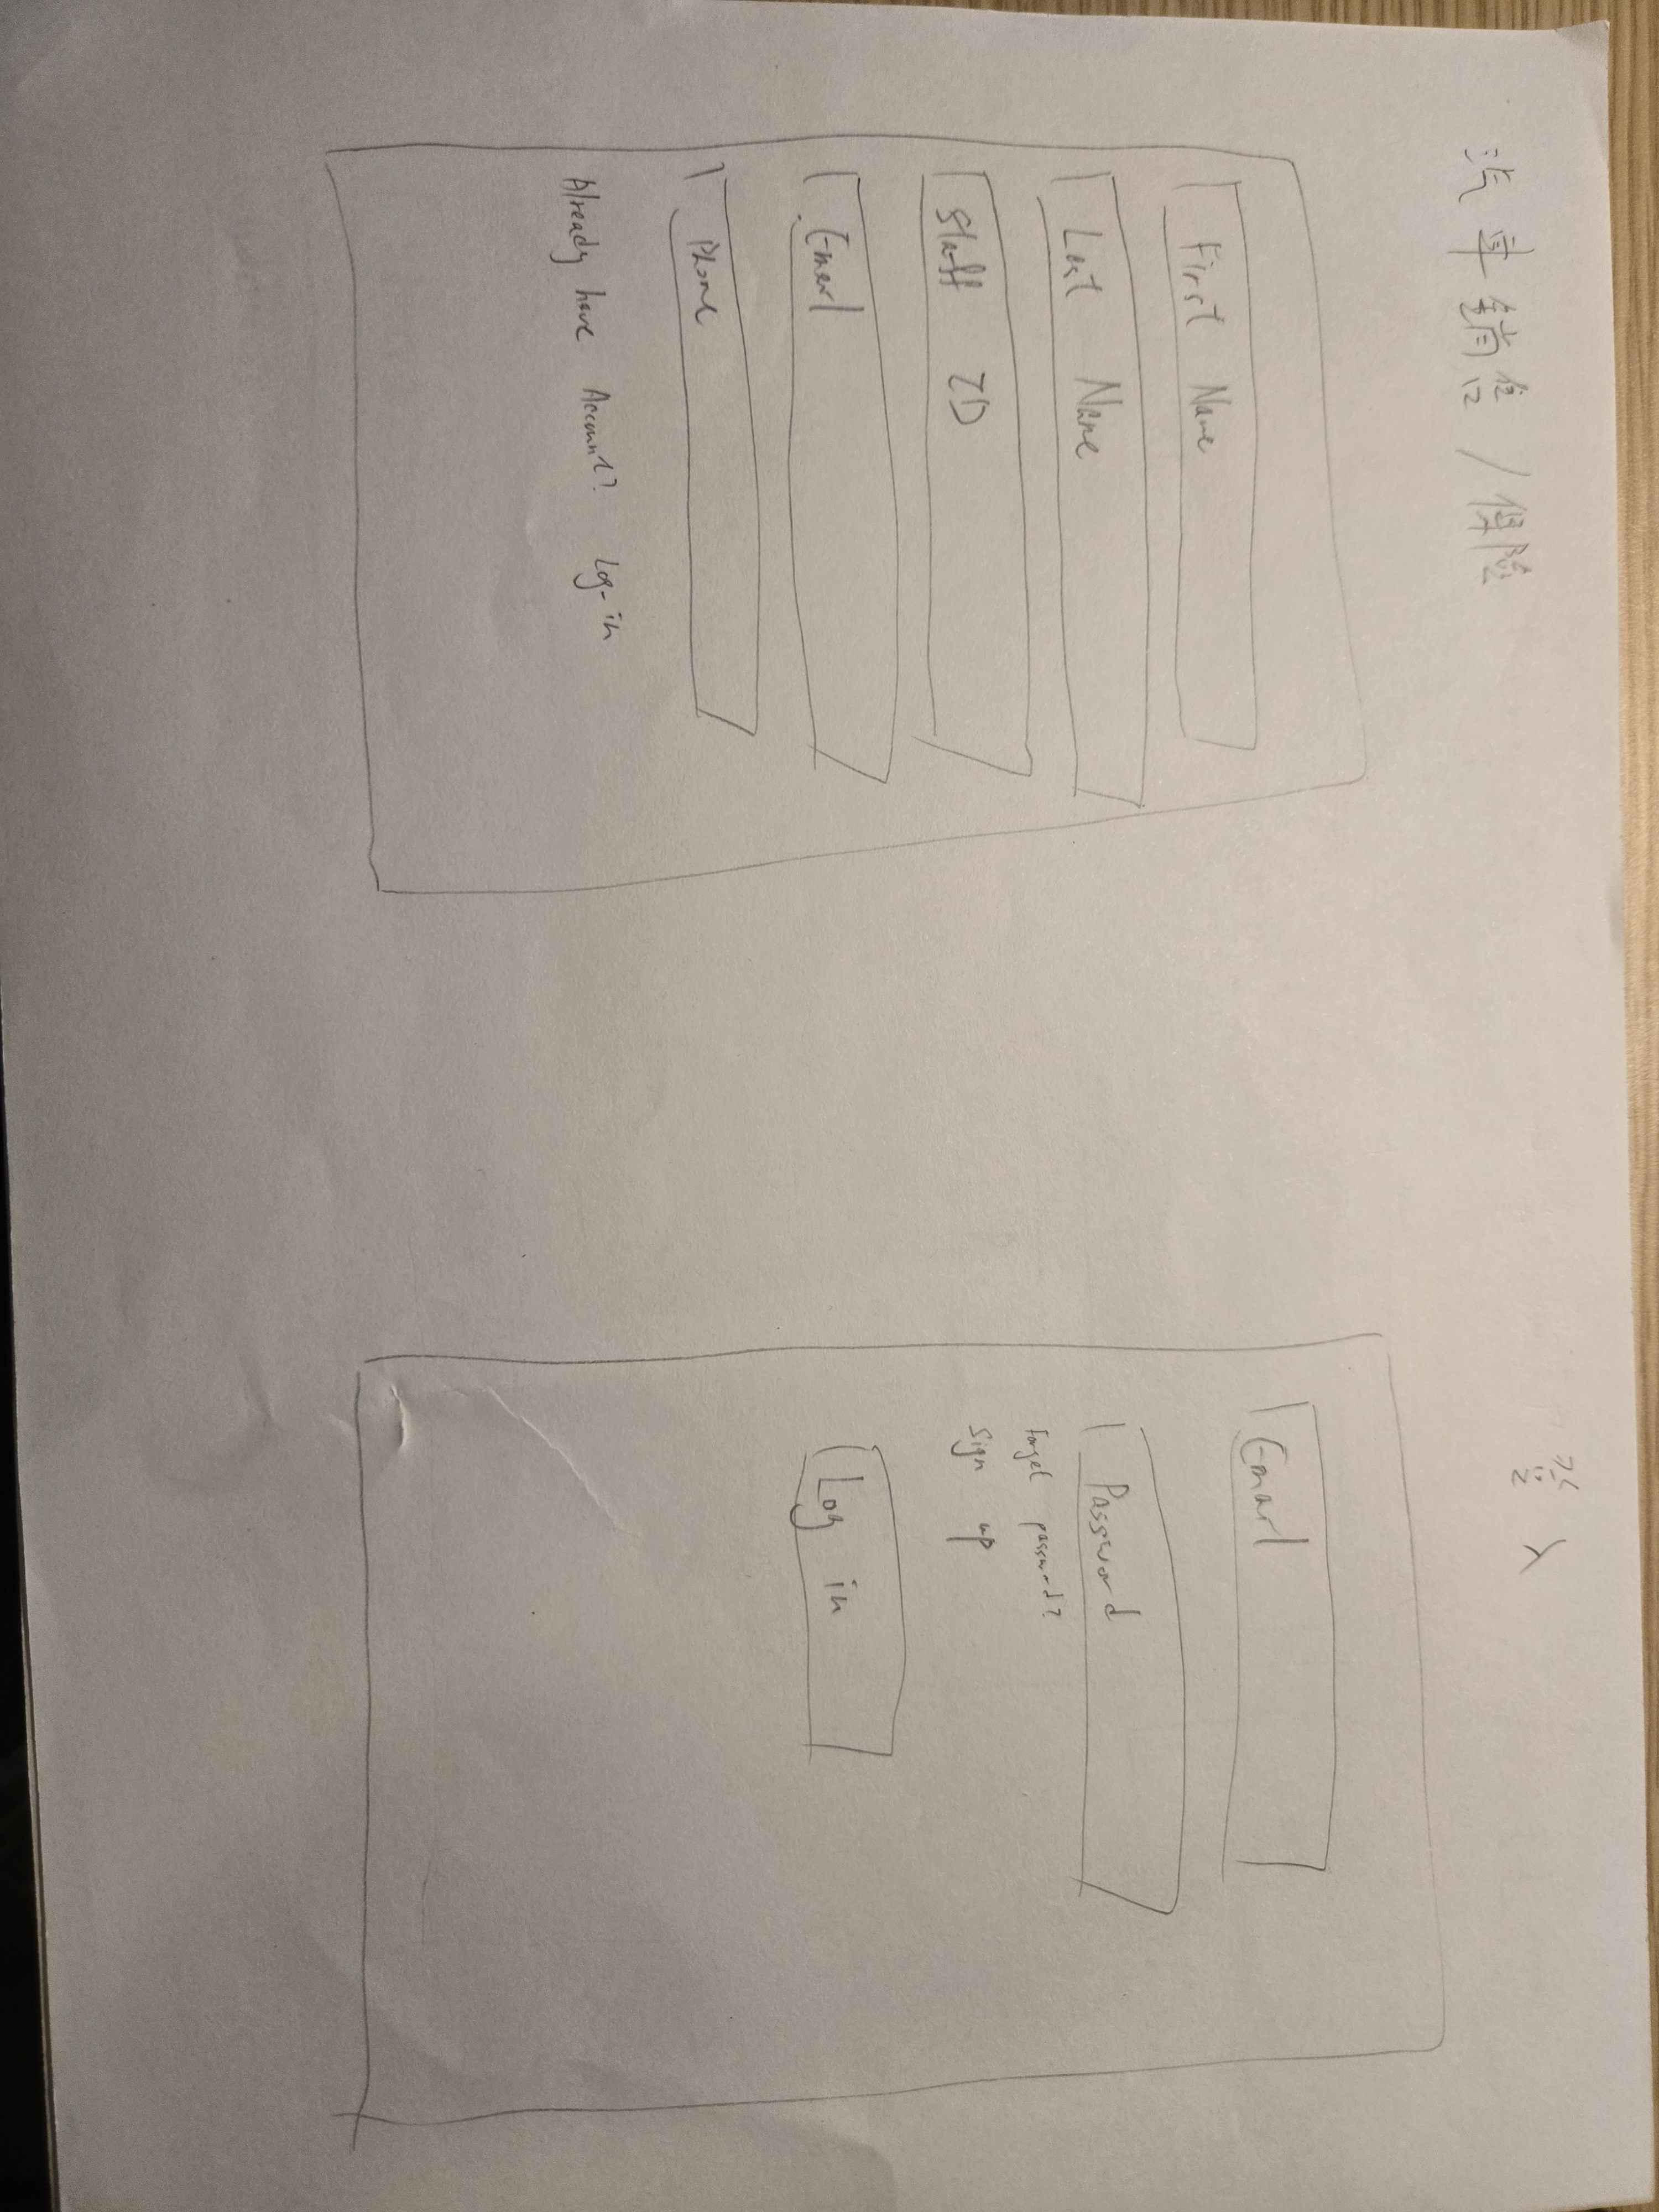 汽車銷售/保險
First Name
Last Name
Staff ID
Email
Phone
Already have Account? Log-in
登入
Email
Password
Forget password?
Sign up
Log in